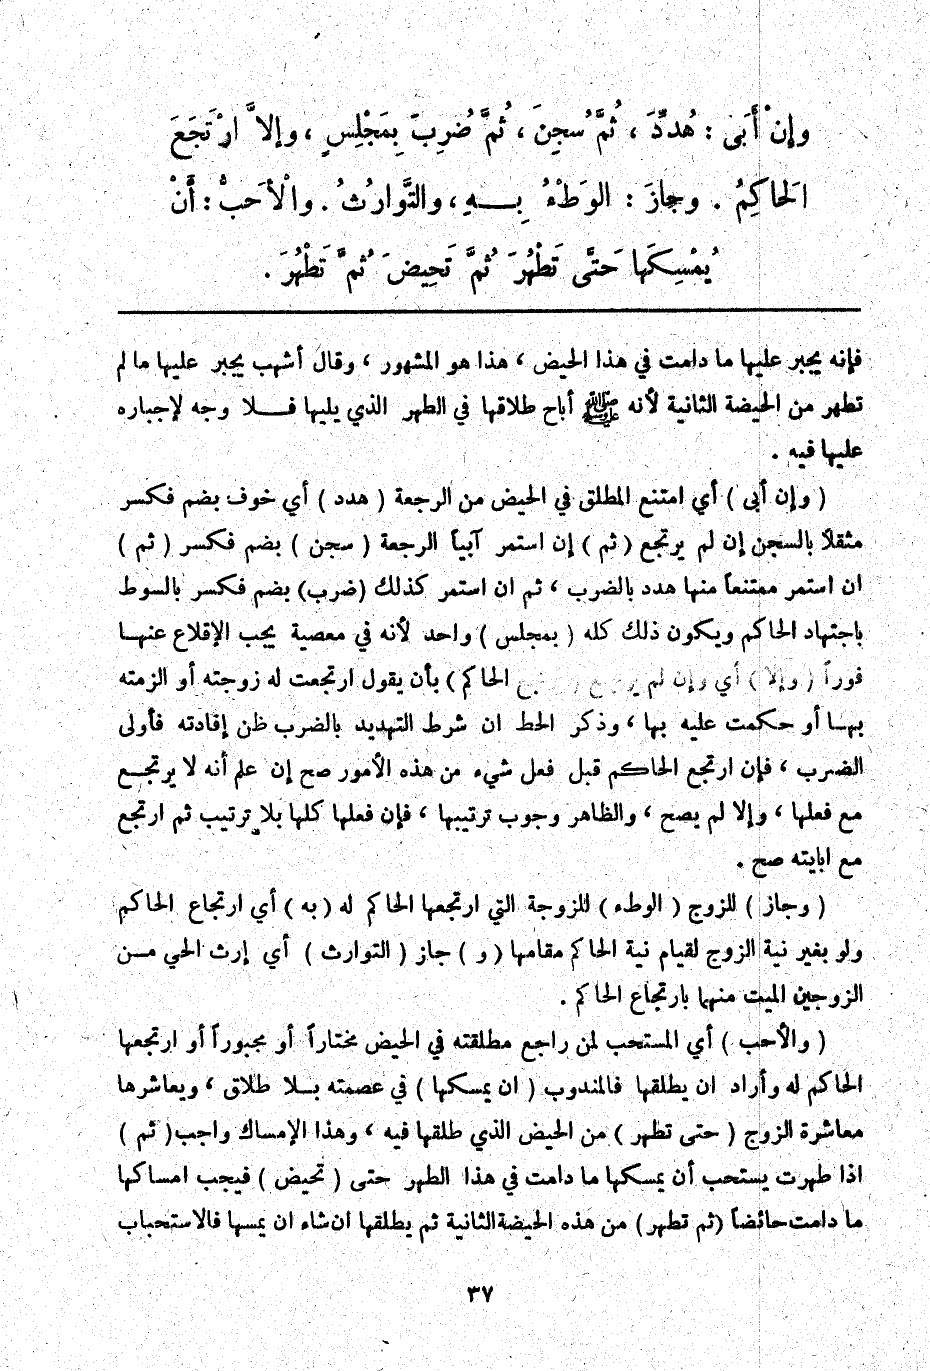 وإِنْ أَبَى : هُدِّدَ ، ثُمَّ سُجِنَ ، ثُمَّ ضُرِبَ بِمَجْلِسٍ ، وإِلاَّ ارْتَجَعَ
الحَاكِمُ . وجازَ : الوَطْءُ بِـهِ ، والتَّوارُثُ . والْأَحَبُّ : أَنْ
يُمْسِكَها حَتَّى تَطْهُرَ ثُمَّ تَحِيضَ ثُمَّ تَطْهُرَ .
فإنه يجبر عليها ما دامت في هذا الحيض ، هذا هو المشهور ، وقال أشهب يجبر عليها ما لم
تطهر من الحيضة الثانية لأنه ﷺ أباح طلاقها في الطهر الذي يليها فـلا وجه لإجباره
عليها فيه .
( وإن أبى ) أي امتنع المطلق في الحيض من الرجعة ( هدد ) أي خوف بضم فكسر
مثقلاً بالسجن إن لم يرتجع ( ثم ) إن استمر آبياً الرجعة ( سجن ) بضم فكسر ( ثم )
ان استمر ممتنعاً منها هدد بالضرب ، ثم ان استمر كذلك (ضرب) بضم فكسر بالسوط
باجتهاد الحاكم ويكون ذلك كله ( بمجلس ) واحد لأنه في معصية يجب الإقلاع عنهـا
فوراً ( وإلا ) أي وإن لم الحاكم ) بأن يقول ارتجعت له زوجته أو الزمته
بهـا أو حكمت عليه بها ، وذكر الحط ان شرط التهديد بالضرب ظن إفادته فأولى
الضرب ، فإن ارتجع الحاكم قبل فعل شيء من هذه الأمور صح إن علم أنه لا يرتجـع
مع فعلها ، وإلا لم يصح ، والظاهر وجوب ترتيبها ، فإن فعلها كلها بلا ترتيب ثم ارتجع
مع ابايته صح .
( وجاز ) للزوج ( الوطء ) للزوجة التي ارتجعها الحاكم له ( به ) أي ارتجاع الحاكم
ولو بغير نية الزوج لقيام نية الحاكم مقامها ( و ) جاز ( التوارث ) أي إرث الحي مـن
الزوجين الميت منهما بارتجاع الحاكم .
( والأحب ) أي المستحب لمن راجع مطلقته في الحيض مختاراً أو مجبوراً أو ارتجعها
الحاكم له وأراد ان يطلقها فالمندوب ( ان يمسكها ) في عصمته بـلا طلاق ، ويعاشرها
معاشرة الزوج ( حتى تطهر ) من الحيض الذي طلقها فيه ، وهذا الإمساك واجب ( ثم )
اذا طهرت يستحب أن يمسكها ما دامت في هذا الطهر حتى ( تحيض ) فيجب امساكها
ما دامت حائضاً (ثم تطهر) من هذه الحيضة الثانية ثم يطلقها ان شاء ان يمسها فالاستحباب
٣٧